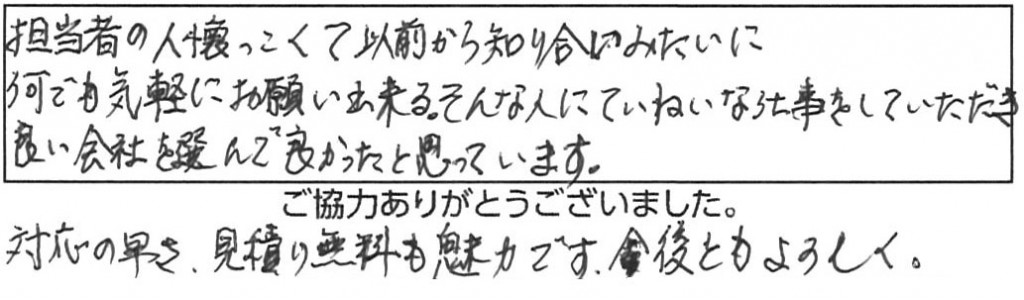 担当者の人懐っこくて以前から知り合いみたいに
何でも気軽にお願い出来る。そんな人にていねいな仕事をしていただき
良い会社を選んで良かったと思っています。
ご協力ありがとうございました。
対応の早さ、見積り無料も魅力です、今後ともよろしく。